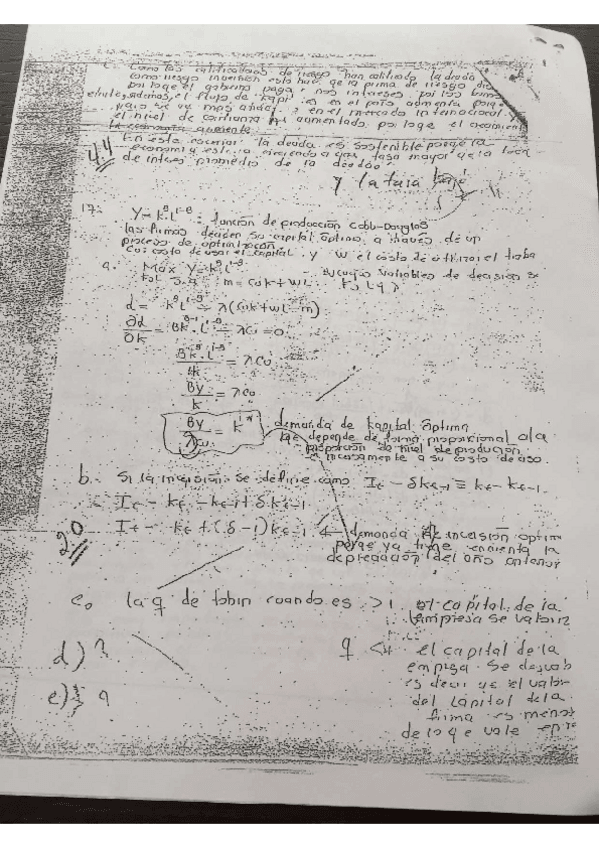 c. Como las calificadoras de riesgo han calificado la deuda
como riesgo inversión esto hace qe la prima de riesgo
por lo qe el gobierno paga nos intereses por los bonos
el flujo de kapi es en el país aumenta porqe
país se ve mas en el mercado internacional y
el nivel de confianza ha aumentado por lo qe el crecimient
la economía aumente
4.4
En este escenar la deuda es sostenible porqe la
economí esta cresiendo a una tasa mayor qe la tasa
de interes promedio de la deuda
y la tasa
17.
Y= K^B L^1-B = función de producción Cobb-Douglas
las firmas deciden su capital optimo a través de un
proceso de optimización.
Cu: costo de usar el capital y W el costo de utilizar el traba
a. Max Y= K^B L^1-B
K,L s.a m = CuK+WL
variables de decisión
K, L y λ
L = K^B L^1-B - λ(CuK+WL-m)
∂L/∂K = BK^B-1 L^1-B - λCu = 0
BK^B L^1-B / K = λCu
BY/K = λCu
BY/λCu = K*
demanda de Kapital óptima
qe depende de forma proporcional a la
de nivel de producion
e inversamente a su costo de uso.
b. Si la inversión se define como It - δKt-1 = Kt - Kt-1
It = Kt - Kt-1 + δKt-1
It = Kt + (δ-1)Kt-1 ← demanda de inversión optim
porqe ya tiene encuenta la
depreciación del año anterior
2.0
c. la q de tobin cuando es >1 el capital de la
empresa se valoriz
q <1 el capital de la
empresa se desvalo
es decir qe el valor
del capital de la
firma es menos
de lo qe vale
d) ?
e) ?